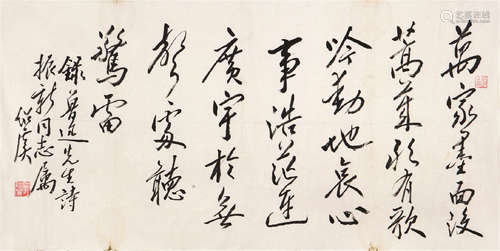 萬家墨面没
蒿莱敢有歌
吟動地哀心
事浩茫連
廣宇於無
聲處聽
驚雷
錄魯迅先生詩
振新同志屬
紹虞